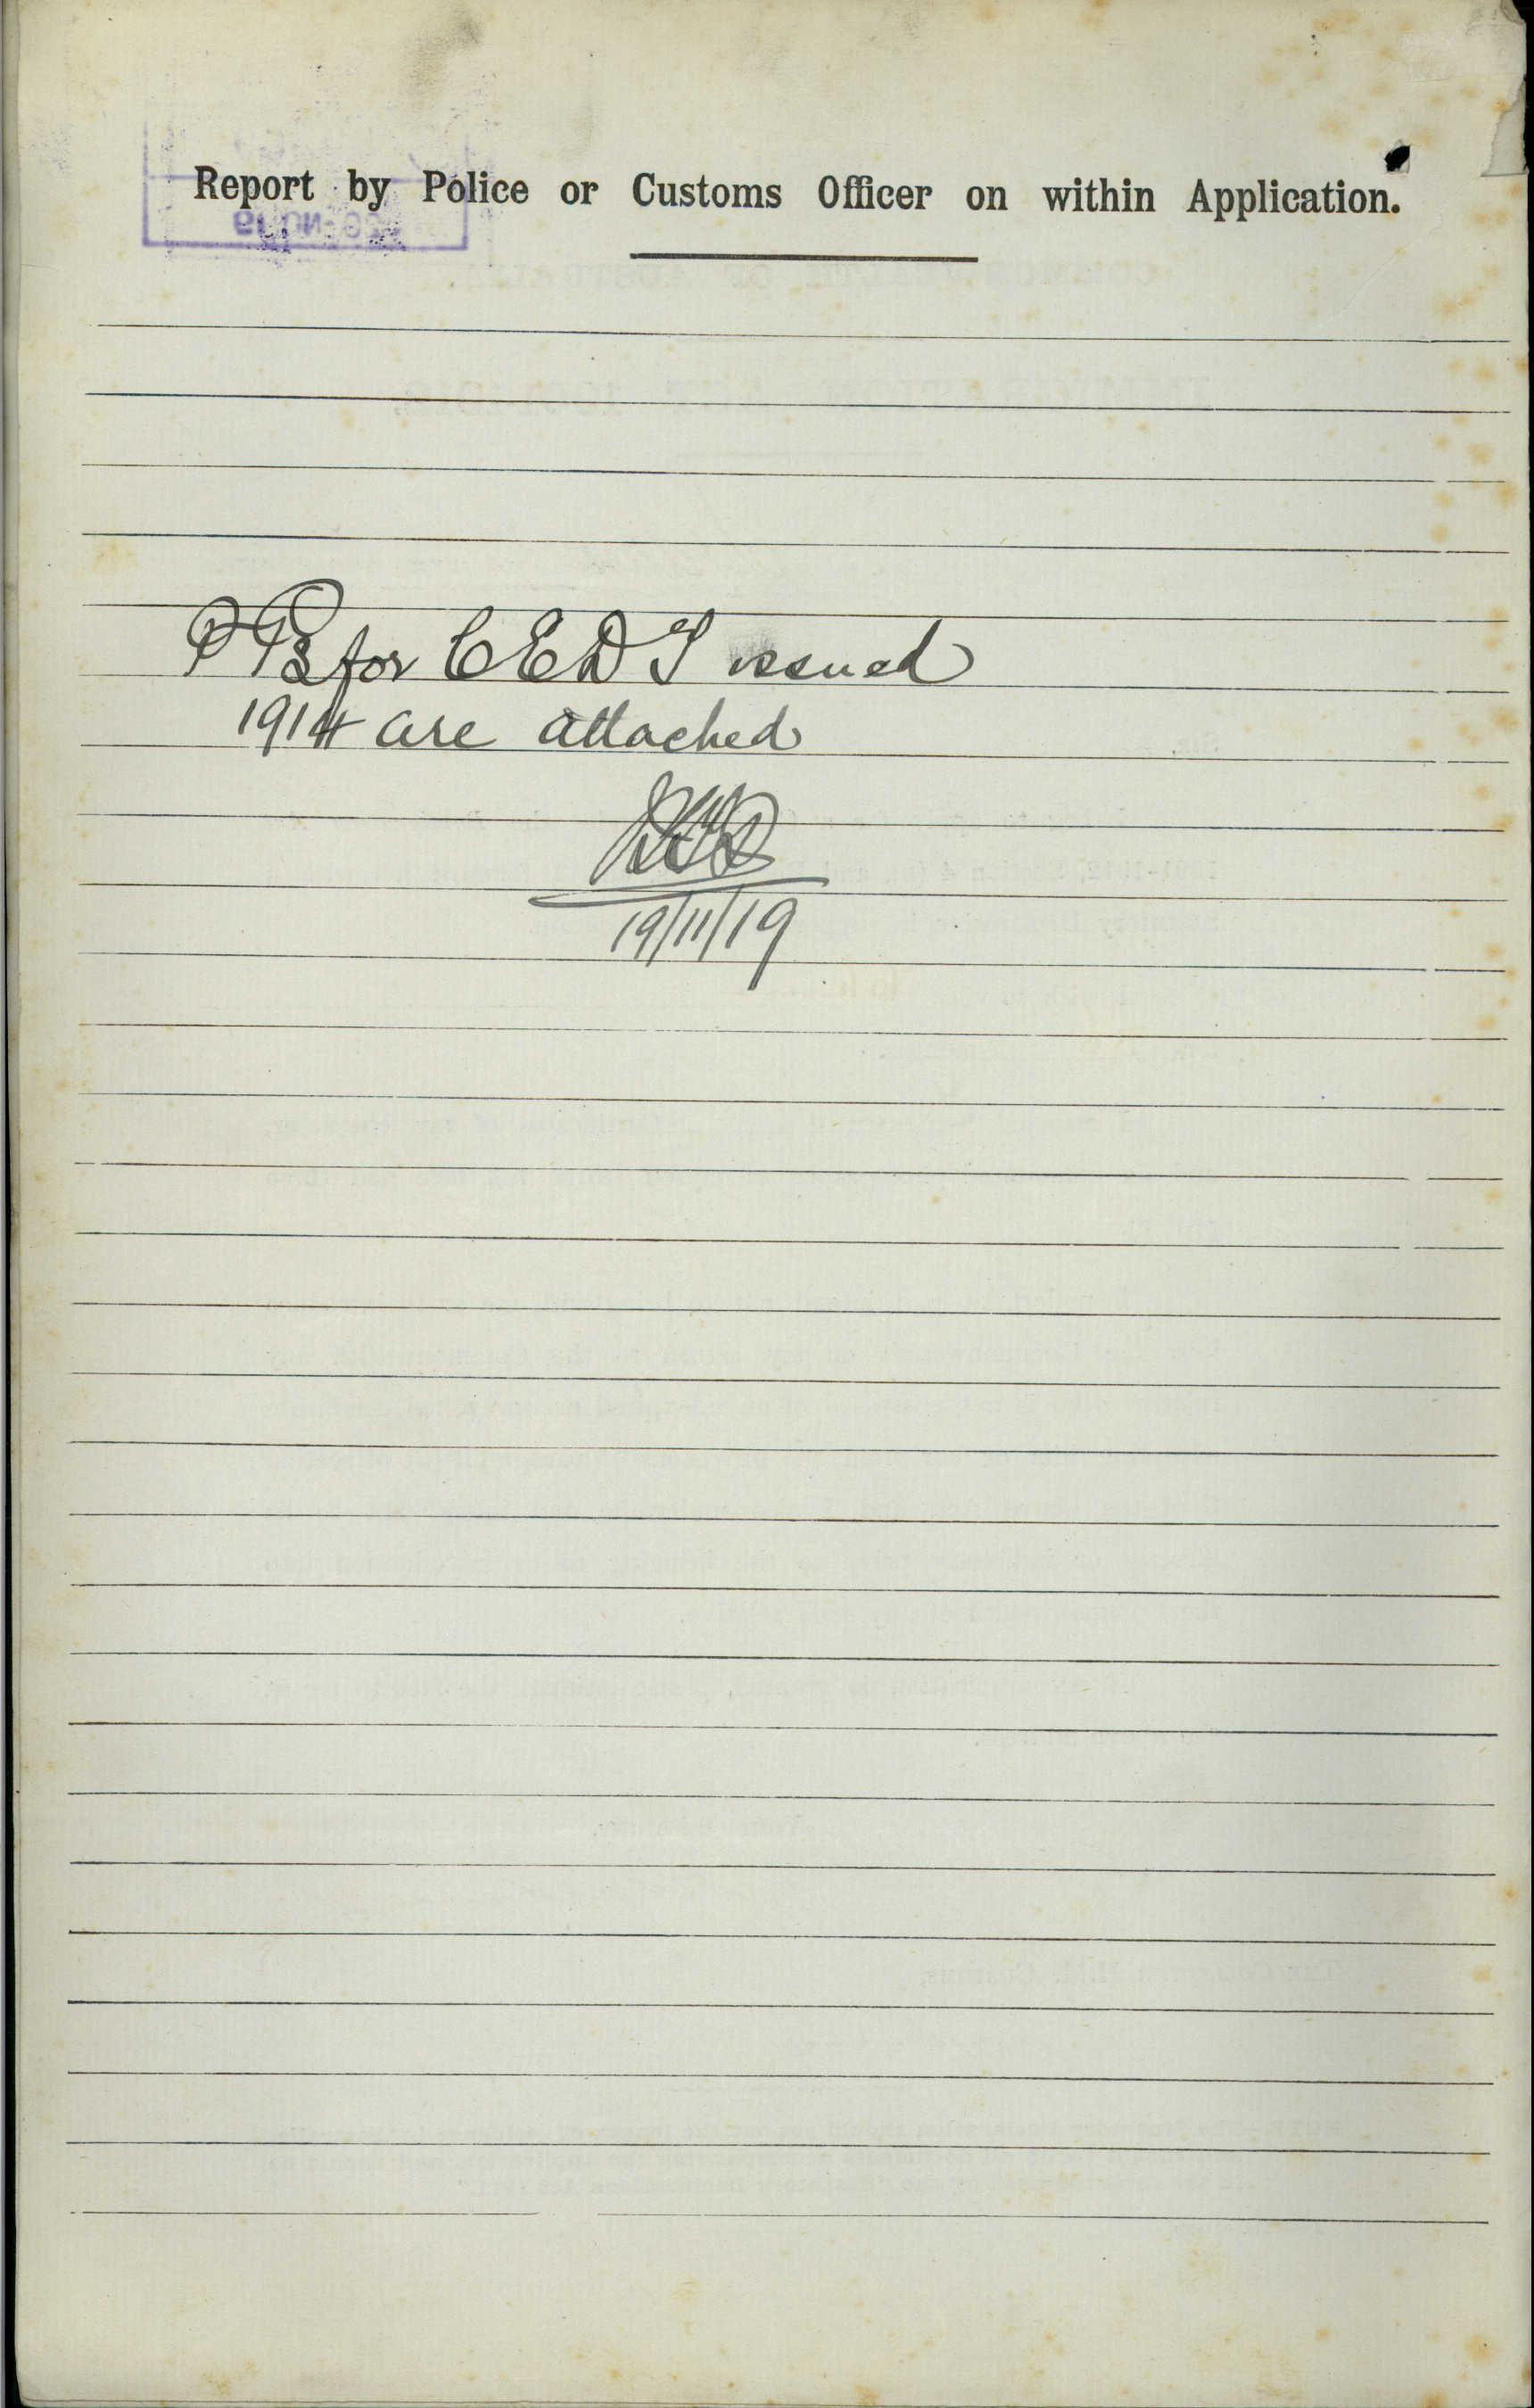 Report by Police or Customs Officer on within Application.
for CEDT issued
1914 are attached
19/11/19